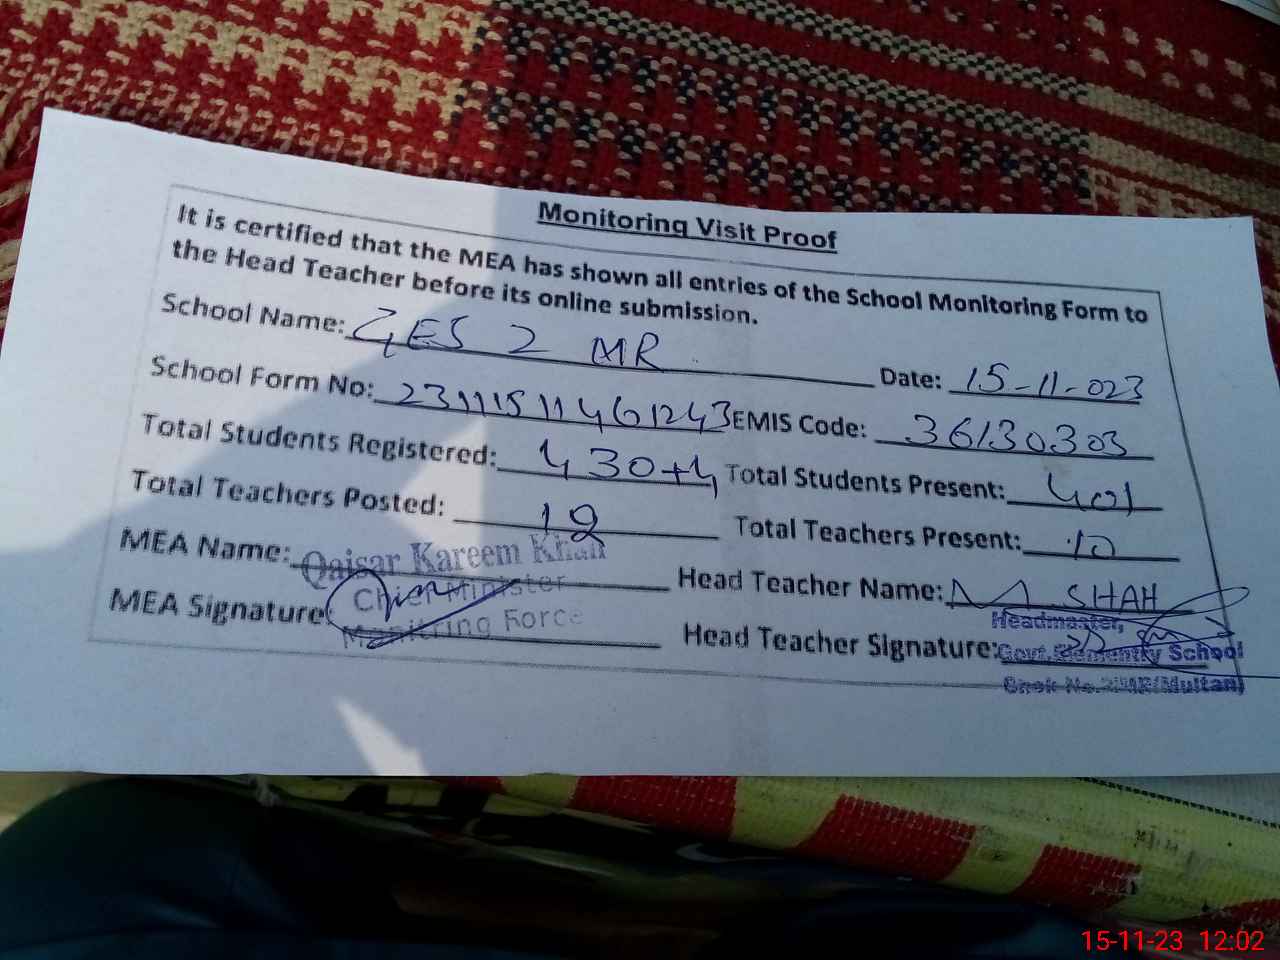 Monitoring Visit Proof
It is certified that the MEA has shown all entries of the School Monitoring Form to
the Head Teacher before its online submission.
School Name: GES 2 MR
Date: 15-11-023
School Form No: 2311151146 1243 EMIS Code: 36130303
Total Students Registered: 430+4 Total Students Present: 401
Total Teachers Posted: 12 Total Teachers Present: 10
MEA Name: Qaisar Kareem Khan Head Teacher Name: M SHAH
MEA Signature Chief Minister
Monitring Force
Head Teacher Signature:
Headmaster,
Govt. Elementry School
Chak No. 2/MR (Multan)
15-11-23 12:02